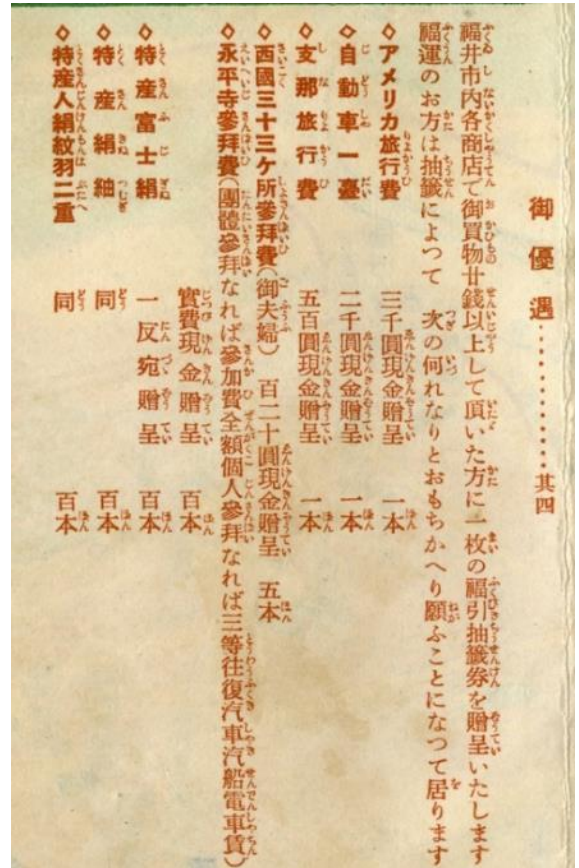 御優遇‥‥‥‥‥‥其四
福井市内各商店で御買物廿錢以上して頂いた方に一枚の福引抽籤券を贈呈いたします
福運のお方は抽籤によつて 次の何れなりとおもちかへり願ふことになつて居ります
◇アメリカ旅行費 三千圓現金贈呈 一本
◇自動車一臺 二千圓現金贈呈 一本
◇支那旅行費 五百圓現金贈呈 一本
◇西國三十三ケ所參拜費(御夫婦) 百二十圓現金贈呈 五本
◇永平寺參拜費(團體參拜なれば參加費全額個人參拜なれば三等往復汽車汽船電車賃)
實費現金贈呈 百本
◇特産富士絹 一反宛贈呈 百本
◇特産絹紬 同 百本
◇特産人絹紋羽二重 同 百本